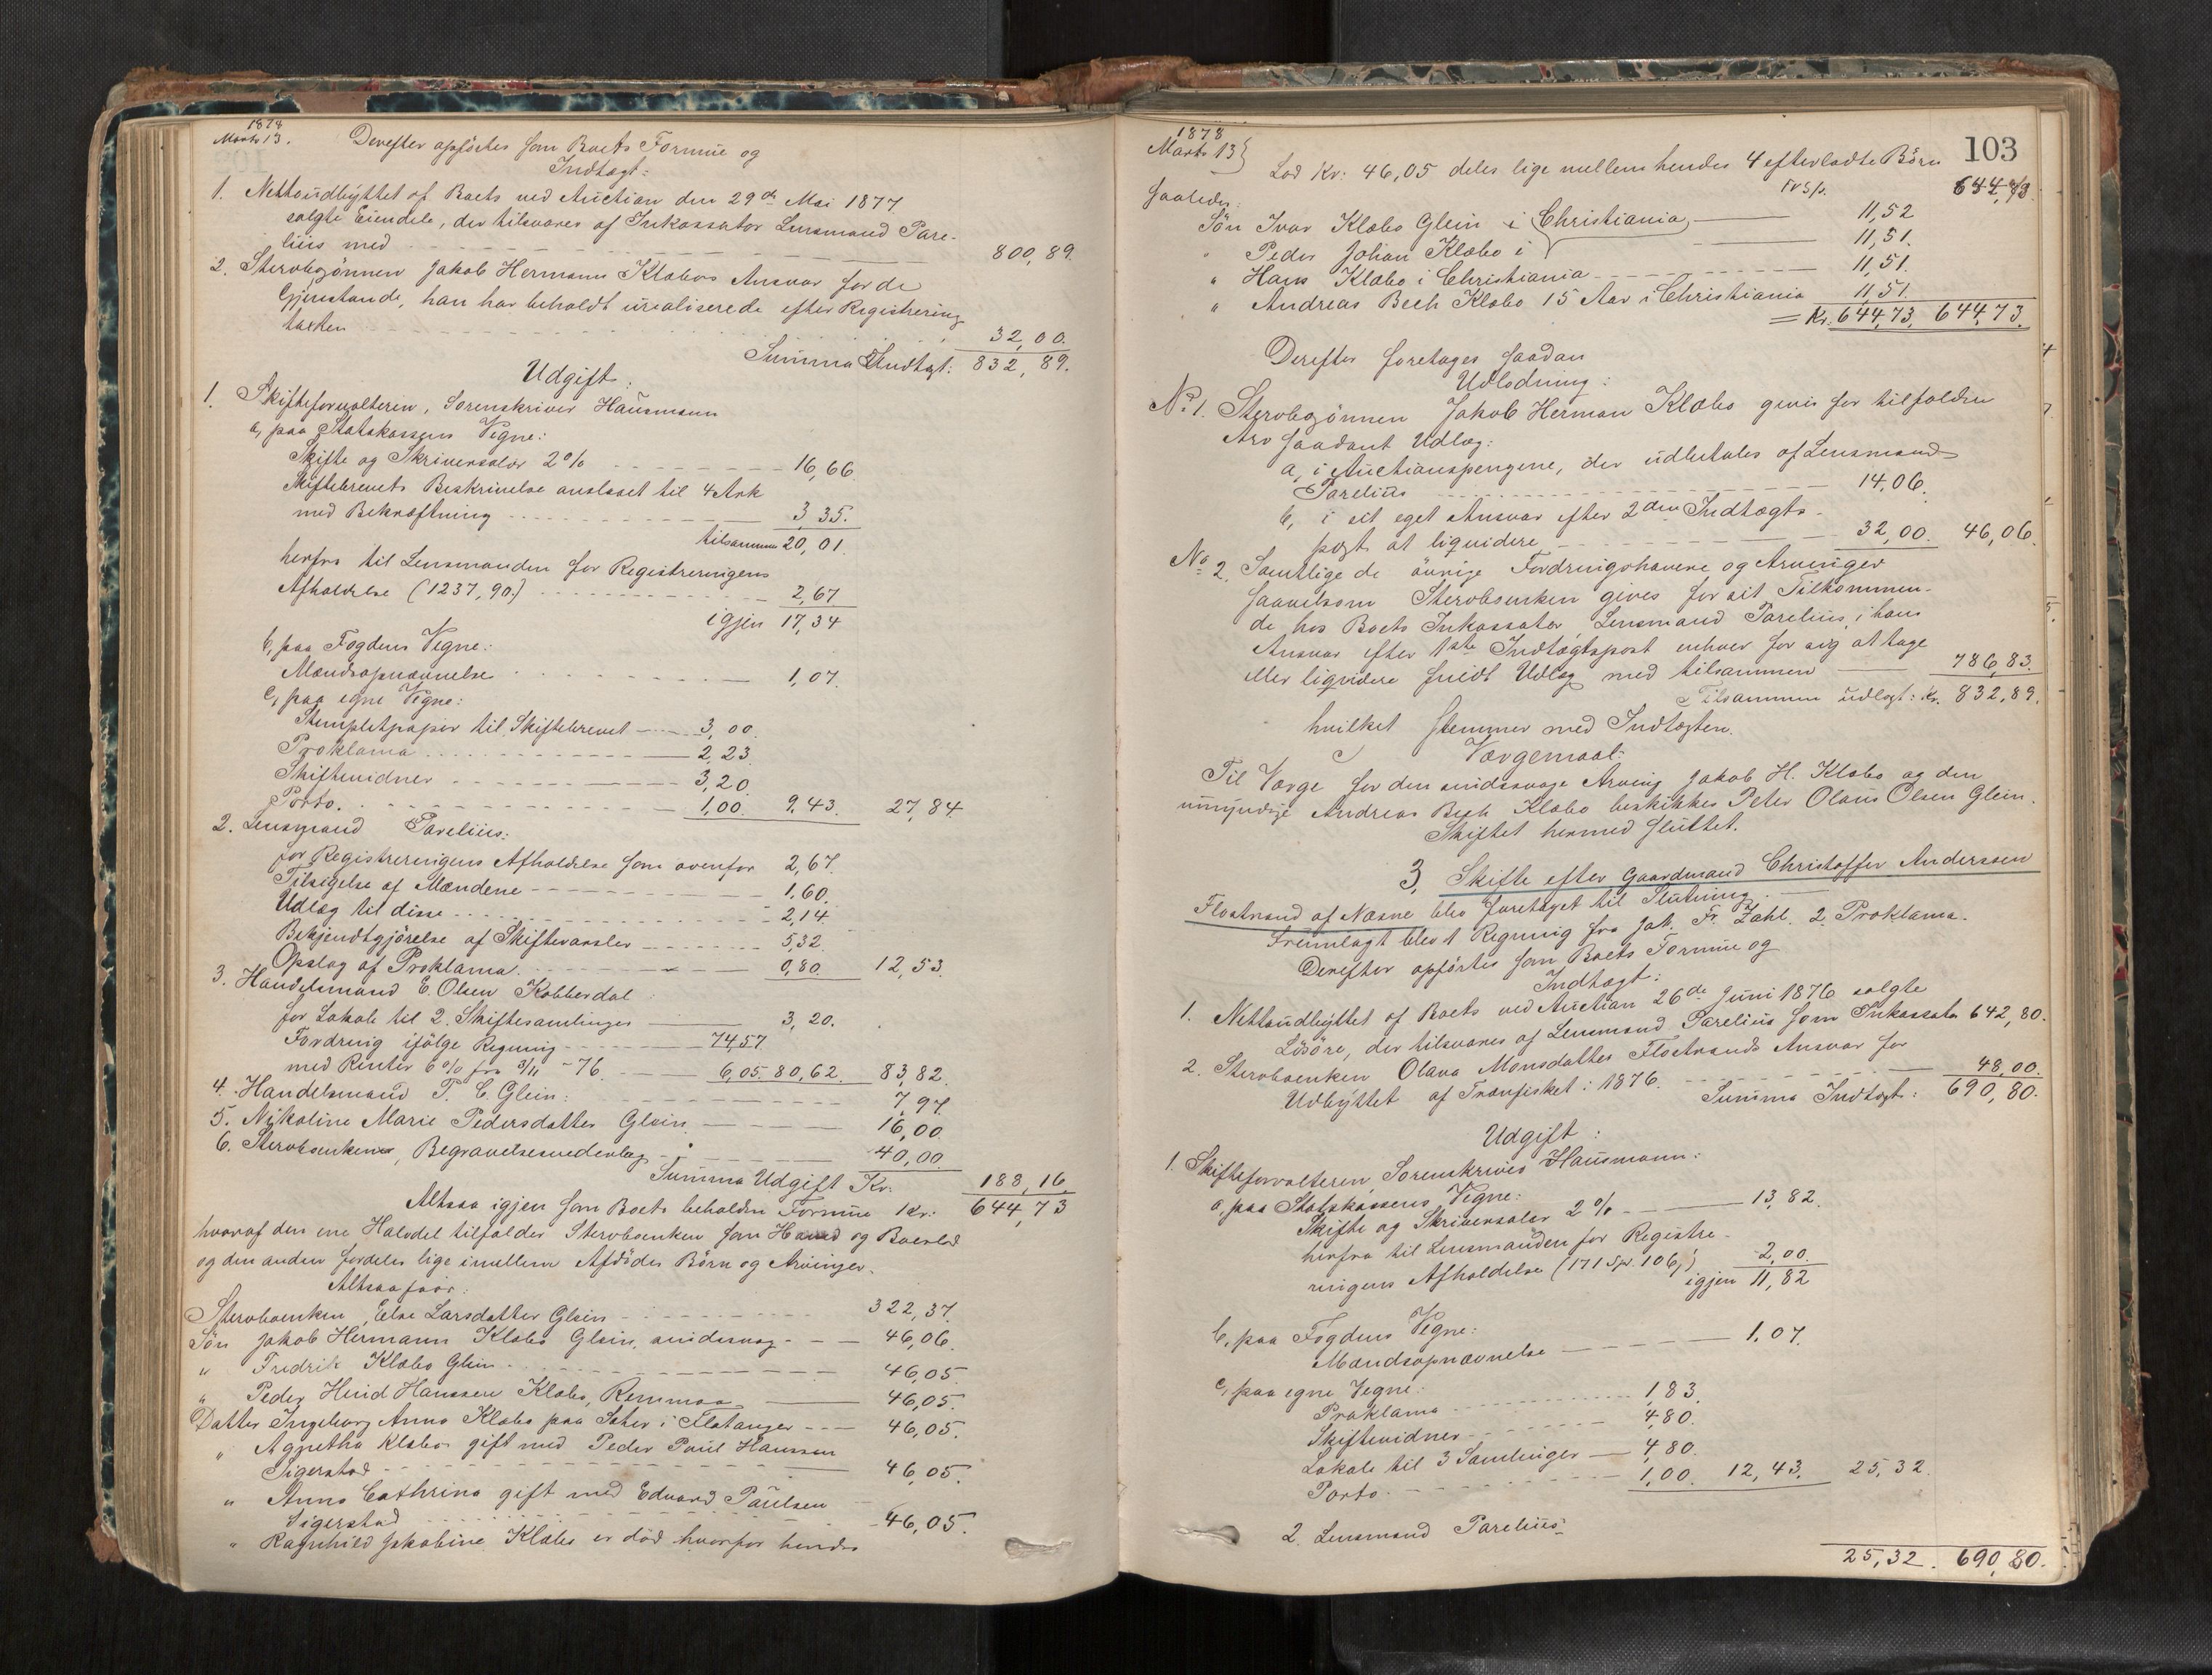 1878
Marts 13.
Derefter opførtes som Boets Formue og
Indtægt:
1. Nettoudbyttet af Boets ved Auction den 29de Mai 1877
solgte Eiendele, der tilsvares af Inkassator Lensmand Pare-
lius med 800,89.
2. Stervbosønnen Jakob Hermann Klæbos Ansvar for de
Gjenstande, han har beholdt urealiserede efter Registrerings
taxten 32,00.
Summa Indtægt: 832,89.
Udgift:
1. Skifteforvalteren, Sorenskriver Hausmann
a, paa Statskassens Vegne:
Skifte og Skriversalær 2% 16,66
Skiftebrevets Beskrivelse anslaaet til 4 Ark
med Bekræftning 3,35.
tilsammen 20,01.
herfra til Lensmanden for Registreringens
Afholdelse (1237,90.) 2,67
igjen 17,34
b, paa Fogdens Vegne:
Mændsopnævnelse 1,07.
c, paa egne Vegne:
Stempletpapir til Skiftebrevet 3,00.
Proklama 2,23
Skiftevidner 3,20.
Porto. 1,00. 9,43. 27,84.
2. Lensmand Parelius:
for Registreringens Afholdelse som ovenfor 2,67.
Tilsigelse af Mændene 1,60.
Udlæg til disse 2,14
Bekjendtgjørelse af Skiftevarsler 5,32.
Opslag af Proklama 0,80. 12,53.
3. Handelsmand E. Olsen Kobberdal
for Lokale til 2 Skiftesamlinger 3,20.
Fordring ifølge Regning 74,57
med Renter 6% fra 3/11 -76. 6,05. 80,62. 83,82.
4. Handelsmand P. C. Glein: 7,97
5. Nikoline Marie Pedersdatter Glein 16,00
6. Stervboenken, Begravelsesvederlag 40,00
Summa Udgift Kr: 188,16
Altsaa igjen som Boets beholdne Formue Kr: 644,73
hvoraf den ene Halvdel tilfalder Stervboenken som Hoved og Boeslod
og den anden fordeles lige imellem Afdødes Børn og Arvinger.
Altsaa faar:
Stervboenken, Else Larsdatter Glein 322,37.
Søn Jakob Hermann Klæbo Glein, sindssvag 46,06.
" Fredrik Klæbo Glein 46,05.
" Peder Hind Hanssen Klæbo, Remmaa 46,05.
Datter Ingeborg Anna Klæbo paa Sæter i Flatanger 46,05.
" Agnetha Klæbo gift med Peder Poul Hanssen
Sigerstad 46,05.
" Anna Cathrina gift med Edvard Paulsen
Sigerstad 46,05.
" Ragnhild Jakobine Klæbo er død hvorfor hendes
1878
Marts 13}
103
Lod Kr: 46,05 deles lige mellem hendes 4 efterladte Børn
saaledes: Tr Sp. 644,73.
Søn Ivar Klæbo Glein i Christiania 11,52
" Peder Johan Klæbo i 11,51.
" Hans Klæbo i Christiania 11,51.
" Andreas Bech Klæbo 15 Aar i Christiania 11,51.
= Kr. 644,73. 644,73.
Derefter foretages saadan
Udlodning:
No 1. Stervbosønnen Jakob Herman Klæbo gives for tilfalden
Arv saadant Udlæg:
a, i Auctionspengene, der udbetales af Lensmand
Parelius 14,06.
b, i sit eget Ansvar efter 2den Indtægts-
post at liquidere 32,00. 46,06.
No 2. Samtlige de øvrige Fordringshavere og Arvinger
saavelsom Stervboenken gives for sit Tilkommen-
de hos Boets Inkassator, Lensmand Parelius, i hans
Ansvar efter 1ste Indtægtspost enhver for sig at tage
eller liquidere fuldt Udlæg med tilsammen 786,83.
Tilsammen udlagt: Kr. 832,89.
hvilket stemmer med Indtægten.
Værgemaal:
Til Værge for den sindssvage Arving Jakob H. Klæbo og den
umyndige Andreas Bech Klæbo beskikkes Peter Olaus Olsen Glein.
Skiftet hermed sluttet.
3, Skifte efter Gaardmand Christoffer Anderssen
Flostrand af Næsne blev foretaget til Slutning.
Fremlagt blev 1 Regning fra Joh. Fr. Zahl. 2 Proklama.
Derefter opførtes som Boets Formue og
Indtægt:
1. Nettoudbyttet af Boets ved Auction 26de Juni 1876 solgte
Løsøre, der tilsvares af Lensmand Parelius som Inkassator 642,80.
2. Stervboenken Olava Monsdatter Flostrands Ansvar for
Udbyttet af Trænfisket i 1876. 48,00.
Summa Indtægt: 690,80.
Udgift:
1. Skifteforvalteren, Sorenskriver Hausmann:
a, paa Statskassens Vegne:
Skifte og Skriversalær 2% 13,82.
herfra til Lensmanden for Registre-
ringens Afholdelse (171 Sp. 106,) 2,00.
igjen 11,82
b, paa Fogdens Vegne:
Mændsopnævnelse 1,07.
c, paa egne Vegne:
Proklama 1,83.
Skiftevidner 4,80.
Lokale til 3 Samlinger 4,80.
Porto 1,00. 12,43. 25,32.
2. Lensmand Parelius:
25,32. 690,80.